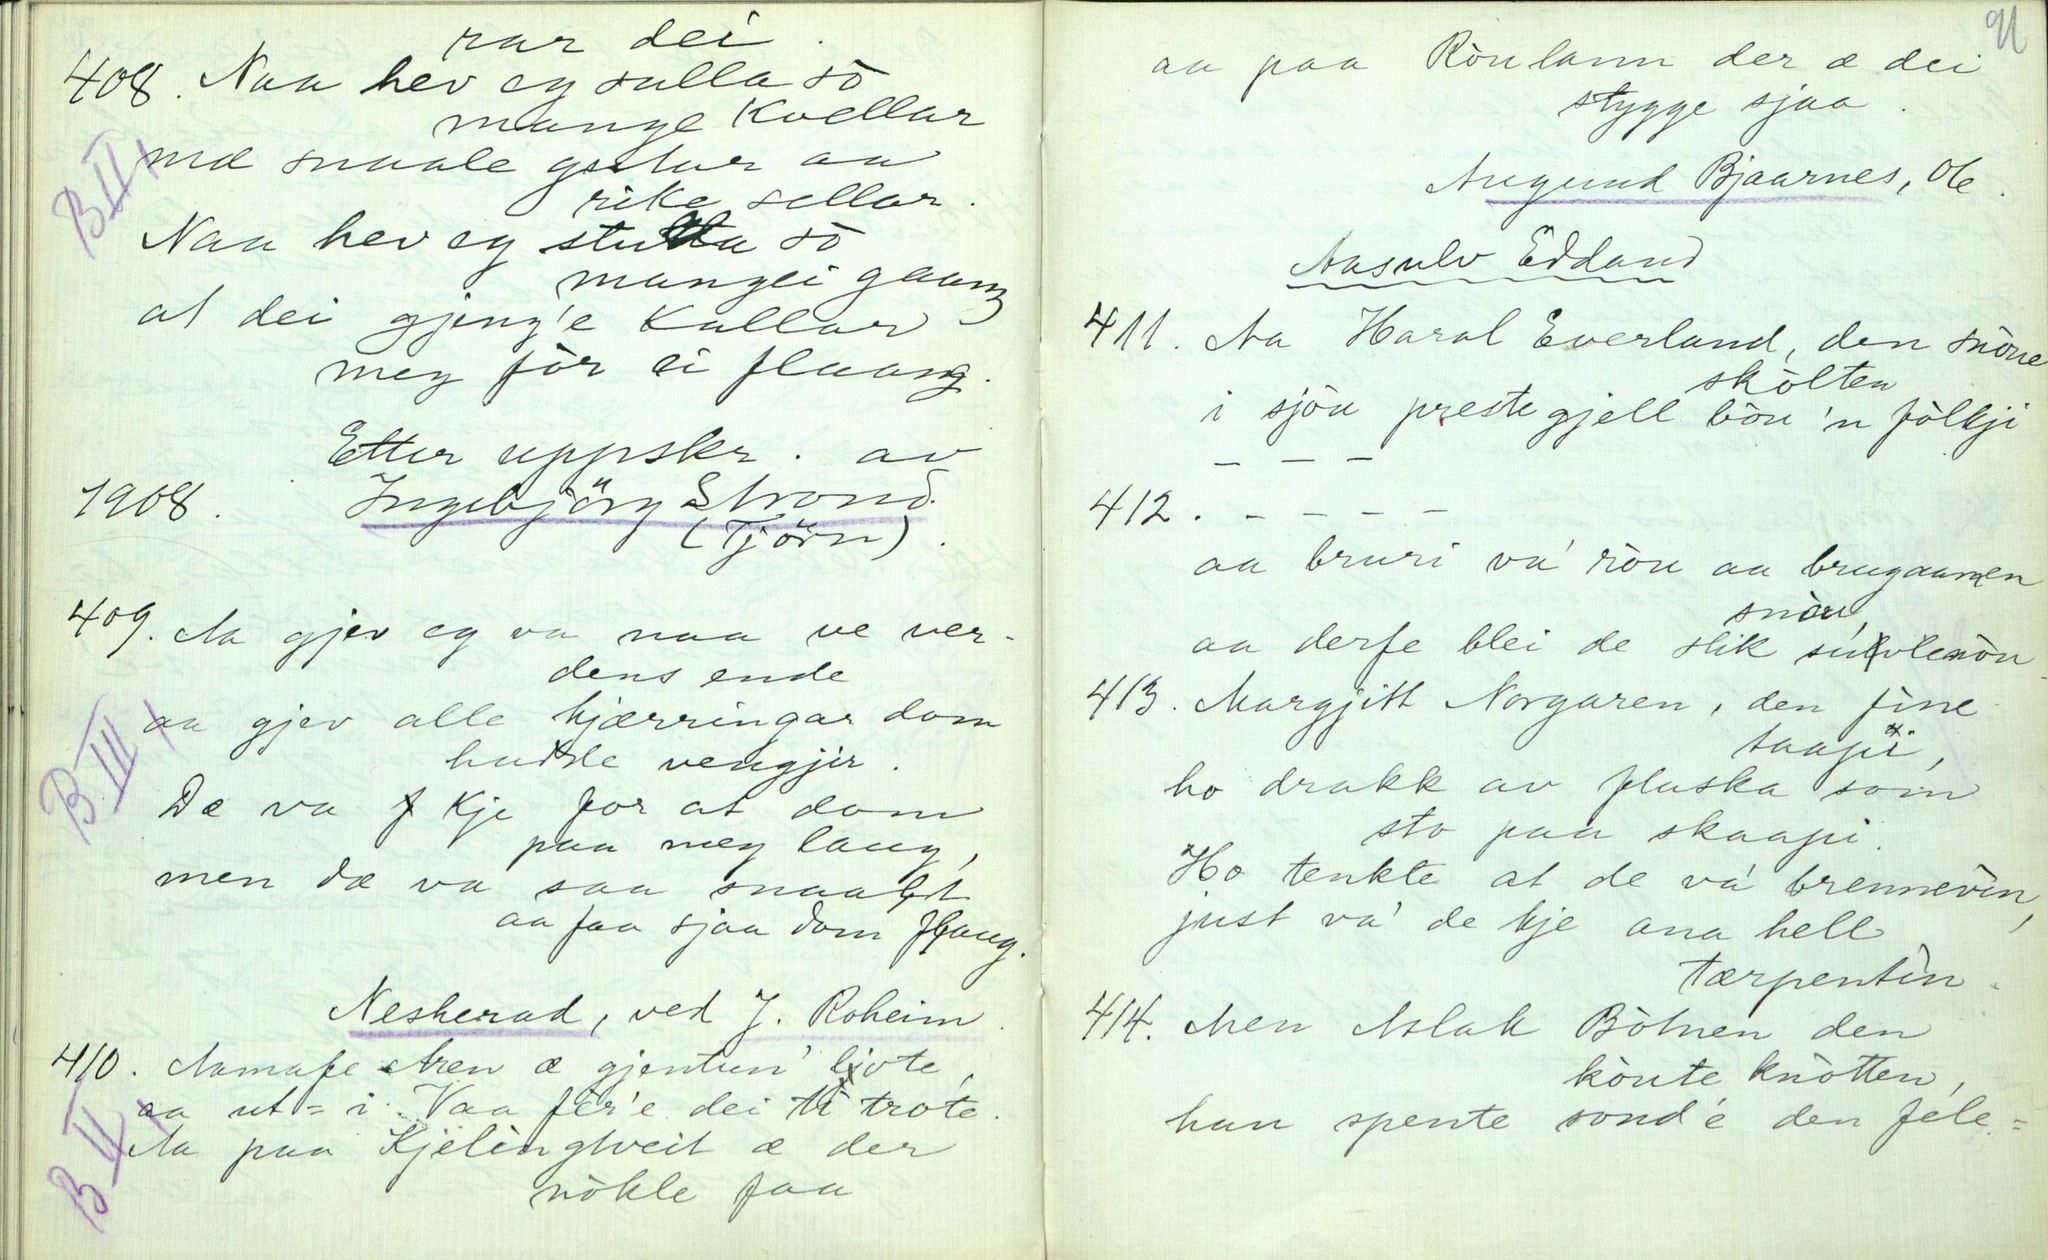 rar dei.
408. Naa hev eg sulla so
mange Kvellar
mæ snaale gutar aa
rike sellar.
Naa hev eg stutta so
mangei gaang
at dei gjeng'e Kallar
meg för ei flaang.
Etter uppskr. av
1908. Ingebjörg Strond.
(Tjörn).
B II,
409. Aa gjev eg va naa ve ver-
dens ende
aa gjev alle kjærringar dom
hadde vengjir.
Dæ va Kje for at dom
paa meg laug,
men dæ va saa snaalt
aa faa sjaa dom flaug.
B III,
Nesherad, ved J. Roheim.
410. Aamafe Aren æ gjentun' ljote,
aa ut-i Vaa fer'e dei ti trote.
Aa paa Kjelingtveit æ der
nökle faa
B II,
91
aa paa Ròulann der æ dei
stygge sjaa.
Augund Bjaarnes, Ole.
Aasulv Edland
411. Aa Haral Everland, den snòue
skòlten
i sjòu prestegjell bòu 'n fòlkji
– – –
412. – – – – –
aa bruri va' ròu aa brugaamen
snòu,
aa derfe blei de slik
413. Margjitt Norgaren, den fine
taapi,
ho drakk av flaska som
sto paa skaapi.
Ho tenkte at de va' brennevin,
just va' de kje ana hell
tærpentin.
414. Men Aslak Bòtnen den
kòute knòtten,
han spente sond'e den féle-